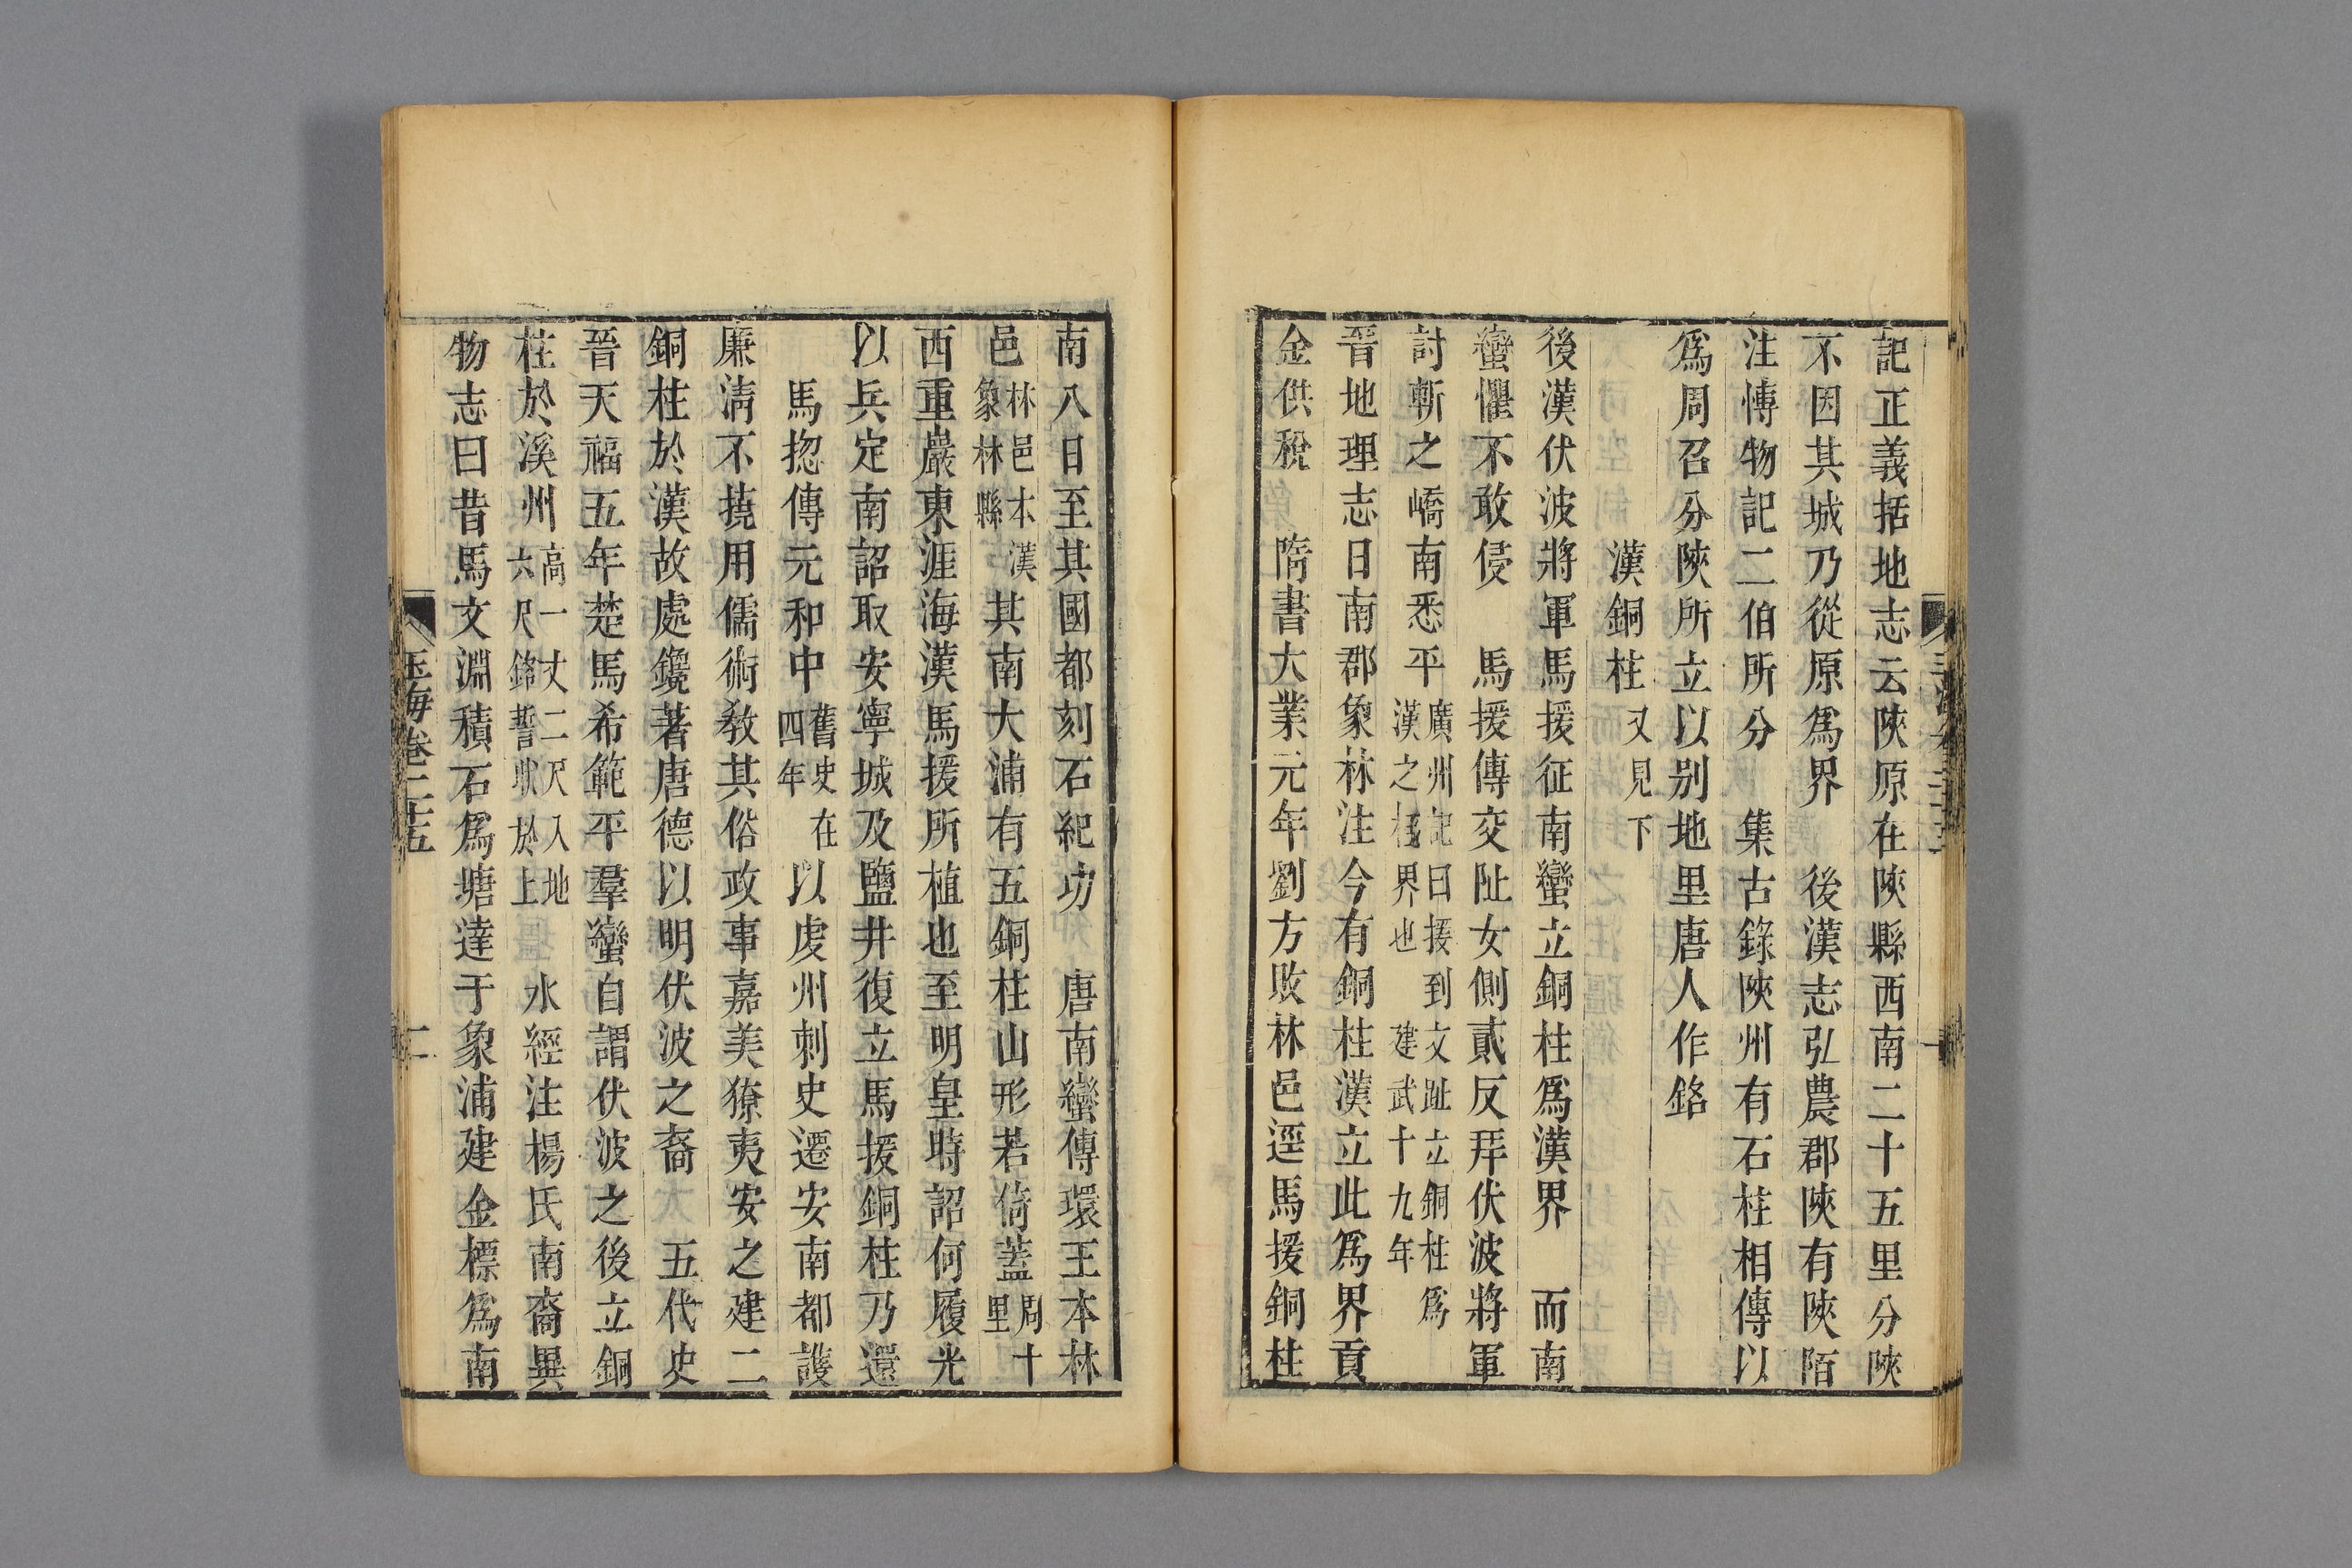 記正義括地志云陝原在陝縣西南二十五里分陝
不因其城乃從原爲界　後漢志弘農郡陝有陝陌
注博物記二伯所分　集古錄陝州有石柱相傳以
爲周召分陝所立以别地里唐人作銘
漢銅柱又見下
後漢伏波將軍馬援征南蠻立銅柱爲漢界　而南
蠻懼不敢侵　馬援傳交阯女側貳反拜伏波將軍
討斬之嶠南悉平廣州記曰援到交趾立銅柱爲漢之極界也　建武十九年
晉地理志日南郡象林注今有銅柱漢立此爲界貢
金供稅　隋書大業元年劉方敗林邑逕馬援銅柱
南八日至其國都刻石紀功　唐南蠻傳環王本林
邑林邑本漢象林縣其南大浦有五銅柱山形若倚蓋周十里
西重巖東涯海漢馬援所植也至明皇時詔何履光
以兵定南詔取安寧城及鹽井復立馬援銅柱乃還
馬揔傳元和中舊史在四年以虔州刺史遷安南都護
廉淸不撓用儒術敎其俗政事嘉美獠夷安之建二
銅柱於漢故處鑱著唐德以明伏波之裔　五代史
晉天福五年楚馬希範平羣蠻自謂伏波之後立銅
柱於溪州高一丈二尺入地六尺銘誓狀於上　水經注楊氏南裔異
物志曰昔馬文淵積石爲塘達于象浦建金標爲南
玉海卷二十五
二